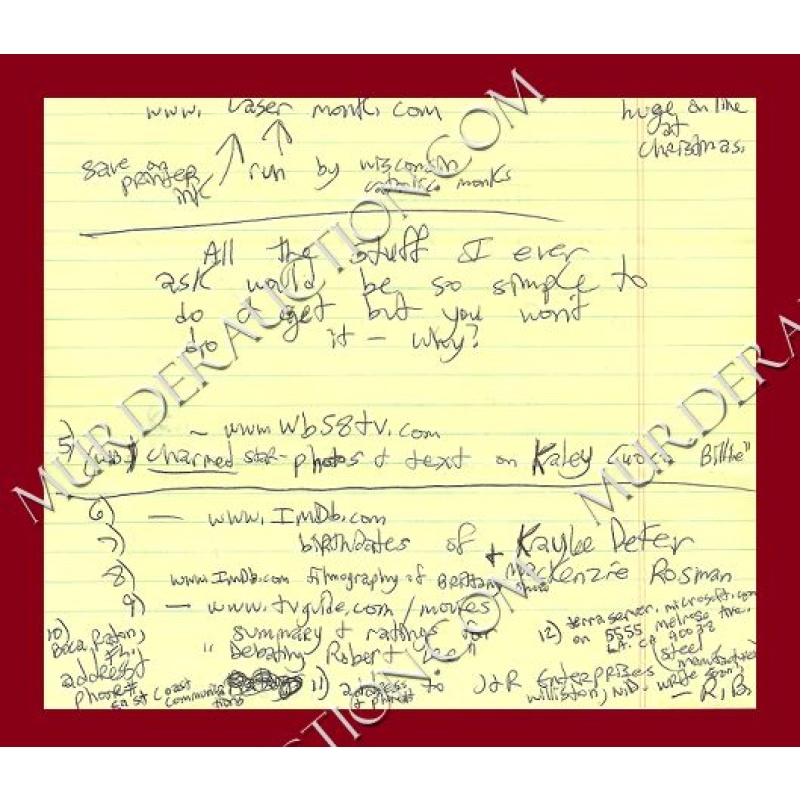 www. Laser monks.com
huge on line
at
Christmas.
save on
printer
ink
run by wisconsin
catholic monks
All the stuff I ever
ask would be so simple to
do & get but you won't
do it - why?
5) ~ www.Wb58tv.com
(WB) Charmed star- photos & text on Kaley Cuoco "Billie"
6) — www.ImDb.com
7) birthdates of Kaylee Defer
+ Mackenzie Rosman
8) www.ImDb.com filmography of Brittany Snow
9) — www.tvguide.com/movies
summary & ratings for
"Debating Robert Lee"
10) Boca Raton,
Fl.
address &
phone #
East Coast
Communica
tions
11) address
& phone #
to J&R Enterprises
Williston, ND.
12) terraserver.microsoft.com
on 5555 Melrose Ave.
LA. CA 90038
(steel
manufacturer)
write soon,
- R.B.
MURDERAUCTION.COM
MURDERAUCTION.COM